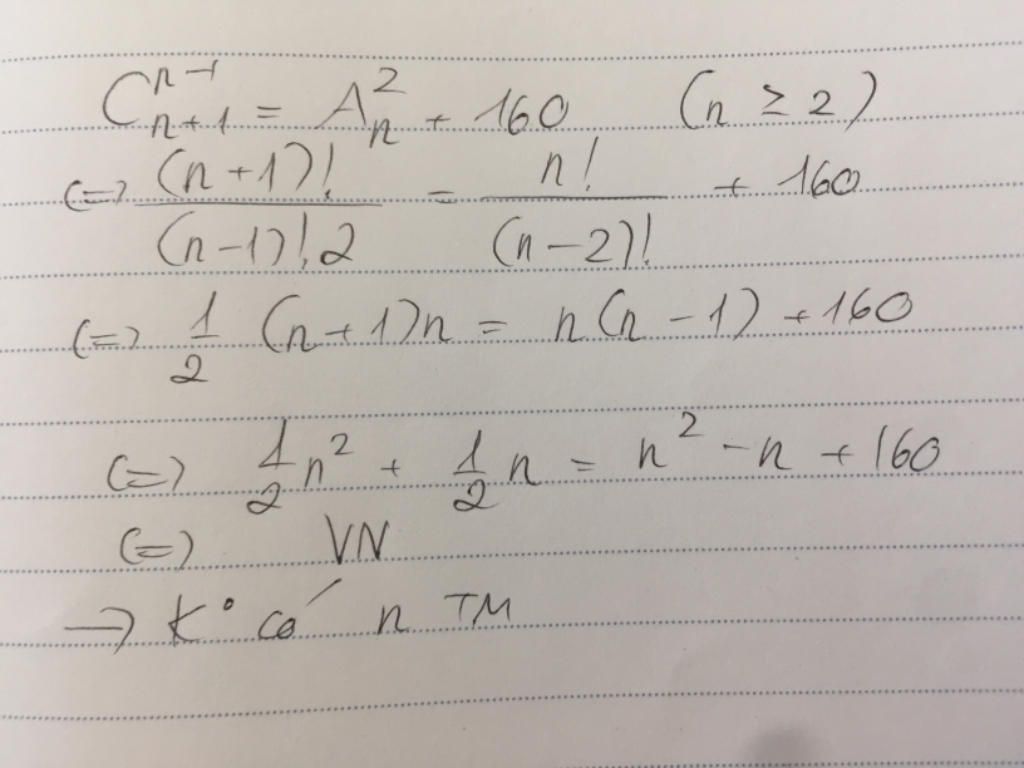 C_{n+1}^{n-1} = A_n^2 + 160 (n ≥ 2)
(=) \frac{(n+1)!}{(n-1)!.2} = \frac{n!}{(n-2)!} + 160
(=) \frac{1}{2} (n+1)n = n(n-1) + 160
(=) \frac{1}{2}n^2 + \frac{1}{2}n = n^2 - n + 160
(=) VN
→ K° có n TM